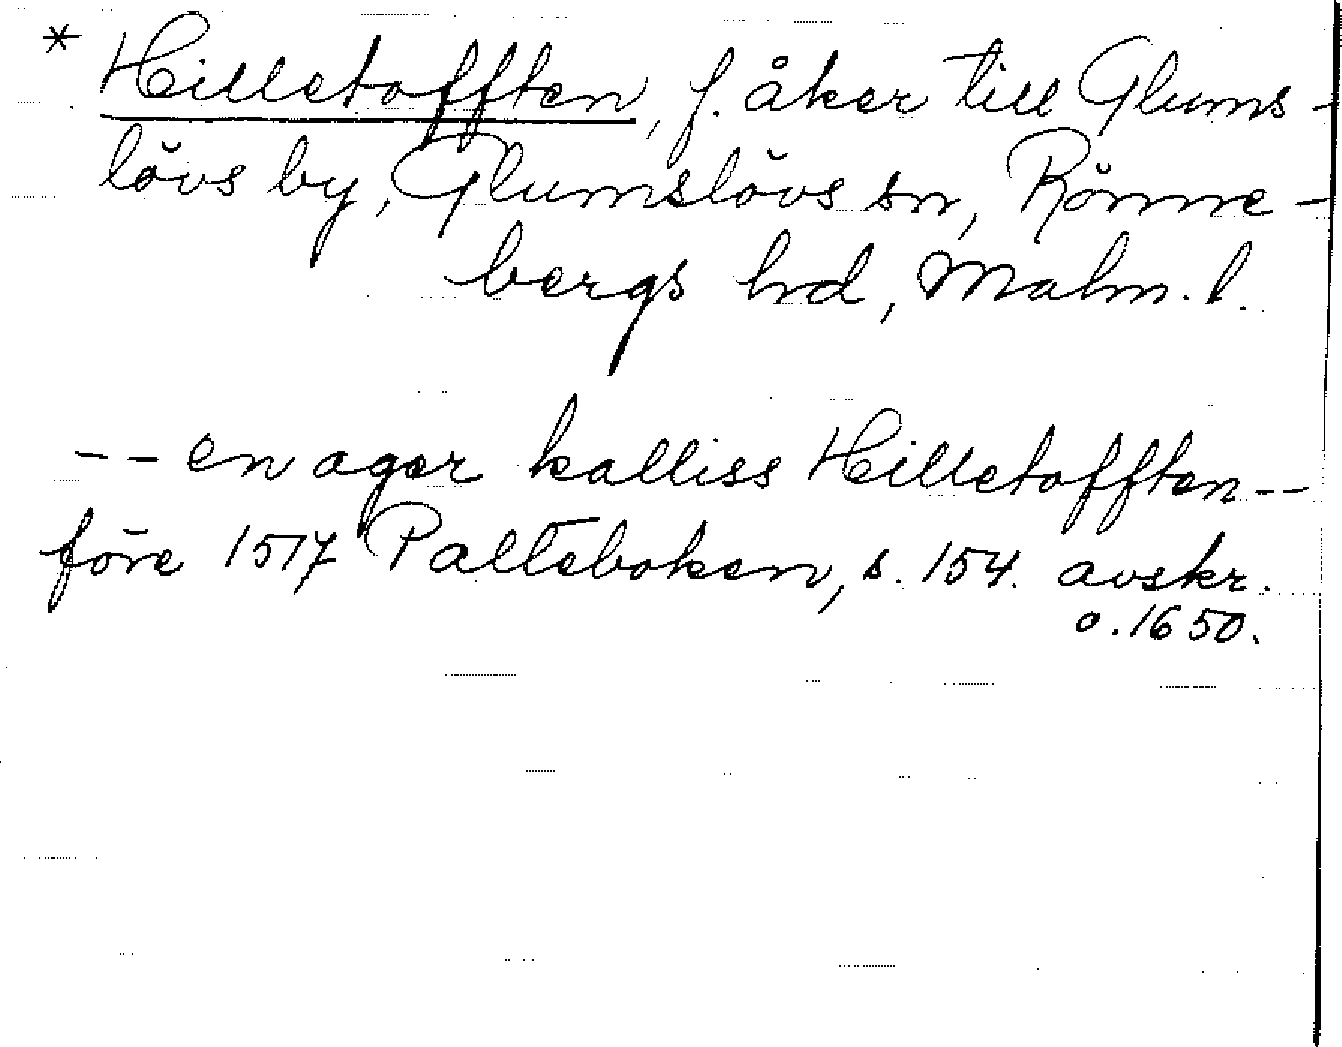 * Hilletofften, f. åker till Glums-
lövs by, Glumslövs sn, Rönne-
bergs hd, Malm. l.
-- en ager kalliss Hilletofften --
före 1517 Palteboken, s. 154. avskr.
o. 1650.